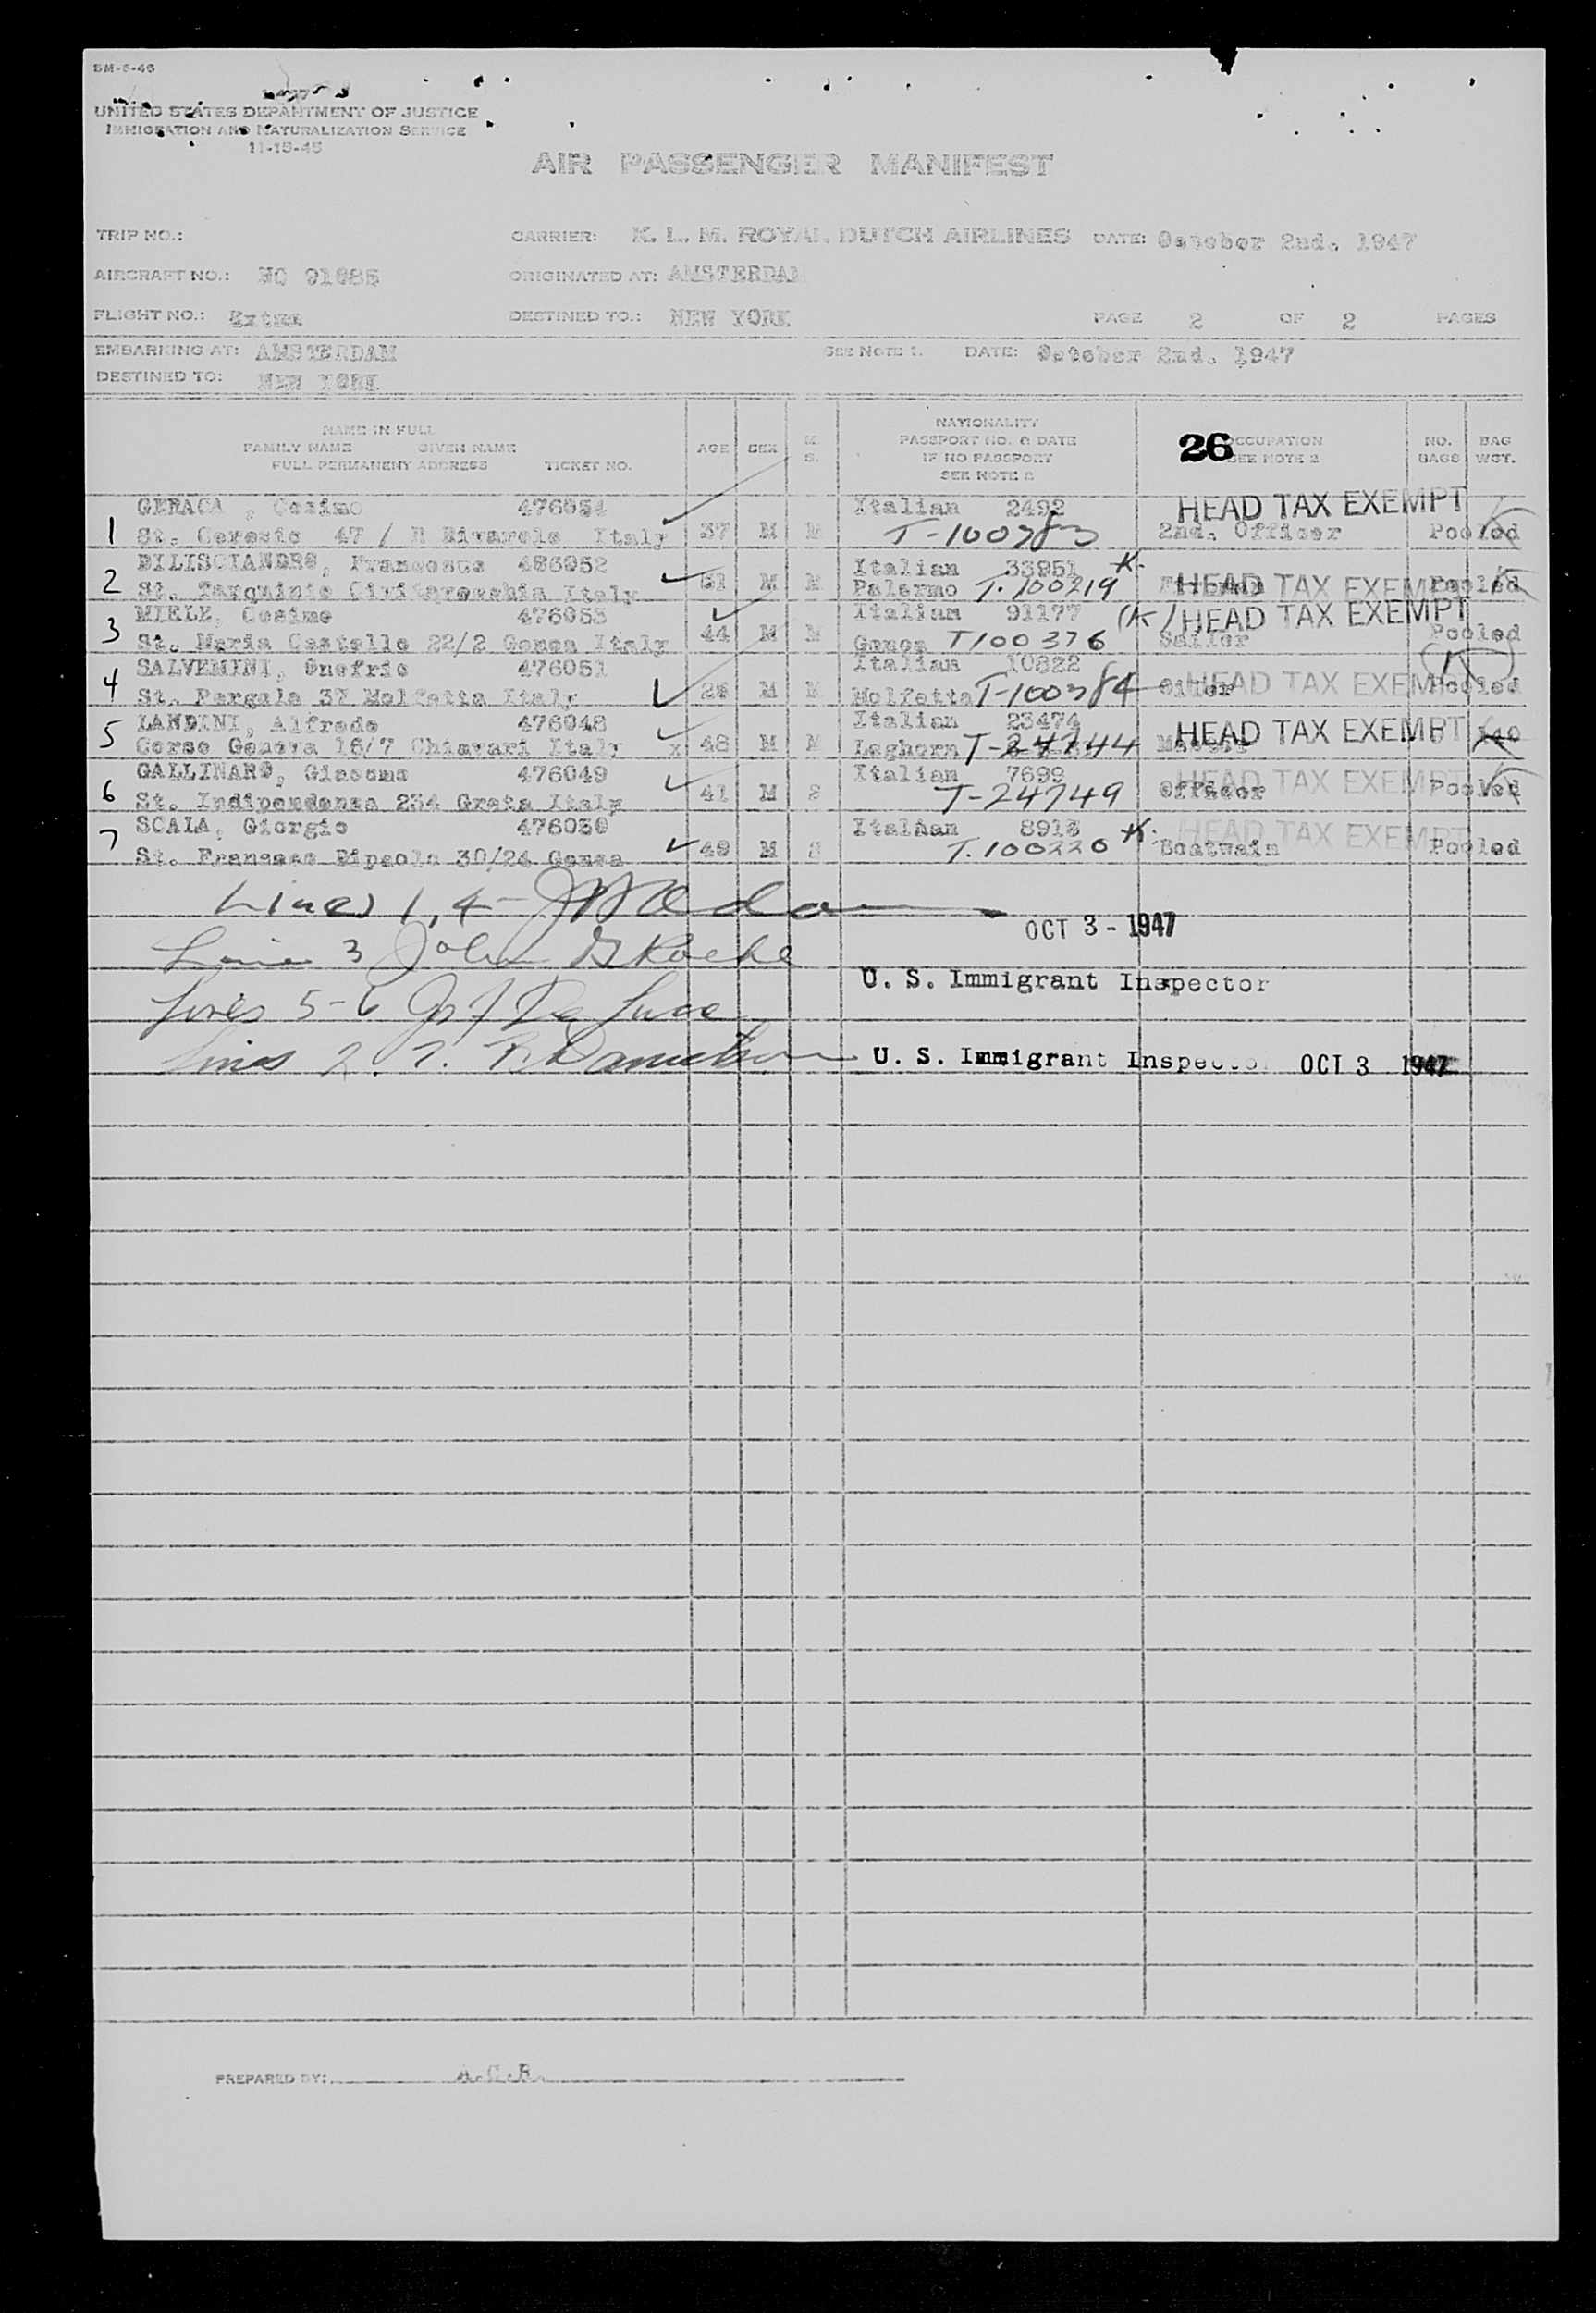 SM-5-46
UNITED STATES DEPARTMENT OF JUSTICE
IMMIGRATION AND NATURALIZATION SERVICE
11-15-45
AIR PASSENGER MANIFEST
TRIP NO.: CARRIER: K. L. M. ROYAL DUTCH AIRLINES DATE: October 2nd. 1947
AIRCRAFT NO.: NC 91885 ORIGINATED AT: AMSTERDAM
FLIGHT NO.: Extra DESTINED TO.: NEW YORK PAGE 2 OF 2 PAGES
EMBARKING AT: AMSTERDAM SEE NOTE 1. DATE: October 2nd. 1947
DESTINED TO: NEW YORK
NAME IN FULL
FAMILY NAME GIVEN NAME
FULL PERMANENT ADDRESS TICKET NO.
AGE SEX M. S.
NATIONALITY
PASSPORT NO. & DATE
IF NO PASSPORT
SEE NOTE 2
26 OCCUPATION
SEE NOTE 2
NO. BAGS
BAG WGT.
GERACA , Cosimo 476054 Italian 2492 HEAD TAX EXEMPT
1 St. Ceresio 47 / R Rivarolo Italy 37 M M T-100383 2nd. Officer Pooled
DILISCIANDRO, Francesco 476052 Italian 33951 K.
2 St. Tarquinio Civitavecchia Italy 51 M M Palermo T.100219 HEAD TAX EXEMPT Pooled
MIELE, Cosimo 476053 Italian 91177 (K) HEAD TAX EXEMPT
3 St. Maria Castello 22/2 Genoa Italy 44 M M Genoa T100376 Sailor Pooled
SALVEMINI, Onofrio 476051 Italian 10822 (K)
4 St. Pergola 37 Molfetta Italy M M Molfetta T-100384 HEAD TAX EXEMPT Pooled
LANDINI, Alfredo 476048 Italian 23474
5 Corso Genova 16/7 Chiavari Italy x 48 M M Leghorn T-24744 HEAD TAX EXEMPT 140
GALLINARO, Giacomo 476049 Italian 7699 HEAD TAX EXEMPT
6 St. Indipendenza 234 Italy 41 M S T-24749 Officer Pooled
SCALA, Giorgio 476050 Italian 8913 K. HEAD TAX EXEMPT
7 St. 30/24 Genoa 49 M S T.100220 Boatwain Pooled
Lines 1, 4 -
OCT 3 - 1947
Line 3 John G Roche
U. S. Immigrant Inspector
Lines 5-6 Jos De Luca
Lines 2. 7.
U. S. Immigrant Inspector OCT 3 1947
PREPARED BY: A.C.R.